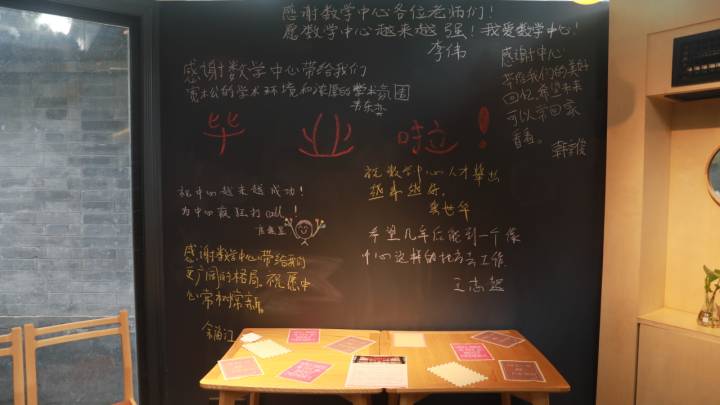 感谢数学中心各位老师们！
愿数学中心越来越强！我爱数学中心！
李伟
感谢数学中心带给我们
宽松的学术环境和浓厚的学术氛围
感谢中心
带给我们的美好
回忆，希望未来
可以常回家
看看。
毕业啦！
祝中心越来越成功！
为中心疯狂打call！
祝数学中心人才辈出
越来越好。
希望几年后能到一个像
中心这样的地方去工作
王志超
感谢数学中心带给我的
更广阔的格局，祝愿中
心常树常新。